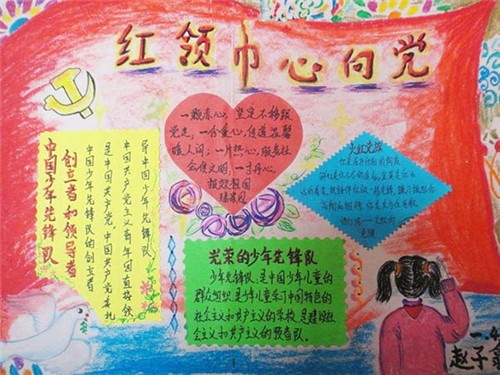 红领巾心向党
中国少年先锋队
创立者和领导者
中国少年先锋队的创立者
是中国共产党。中国共产党委托
中国共产主义青年团直接领
导中国少年先锋队
一颗春心,坚定不移跟
党走,一份童心,传递温馨
暖人间;一片热心,服务社
会促文明;一寸丹心,
报效祖国
火红党旗
光荣的少年先锋队
少年先锋队,是中国少年儿童的
群众组织是少年儿童学习中国特色的
社会主义和共产主义的学校,是建设社
会主义和共产主义的预备队。
赵子